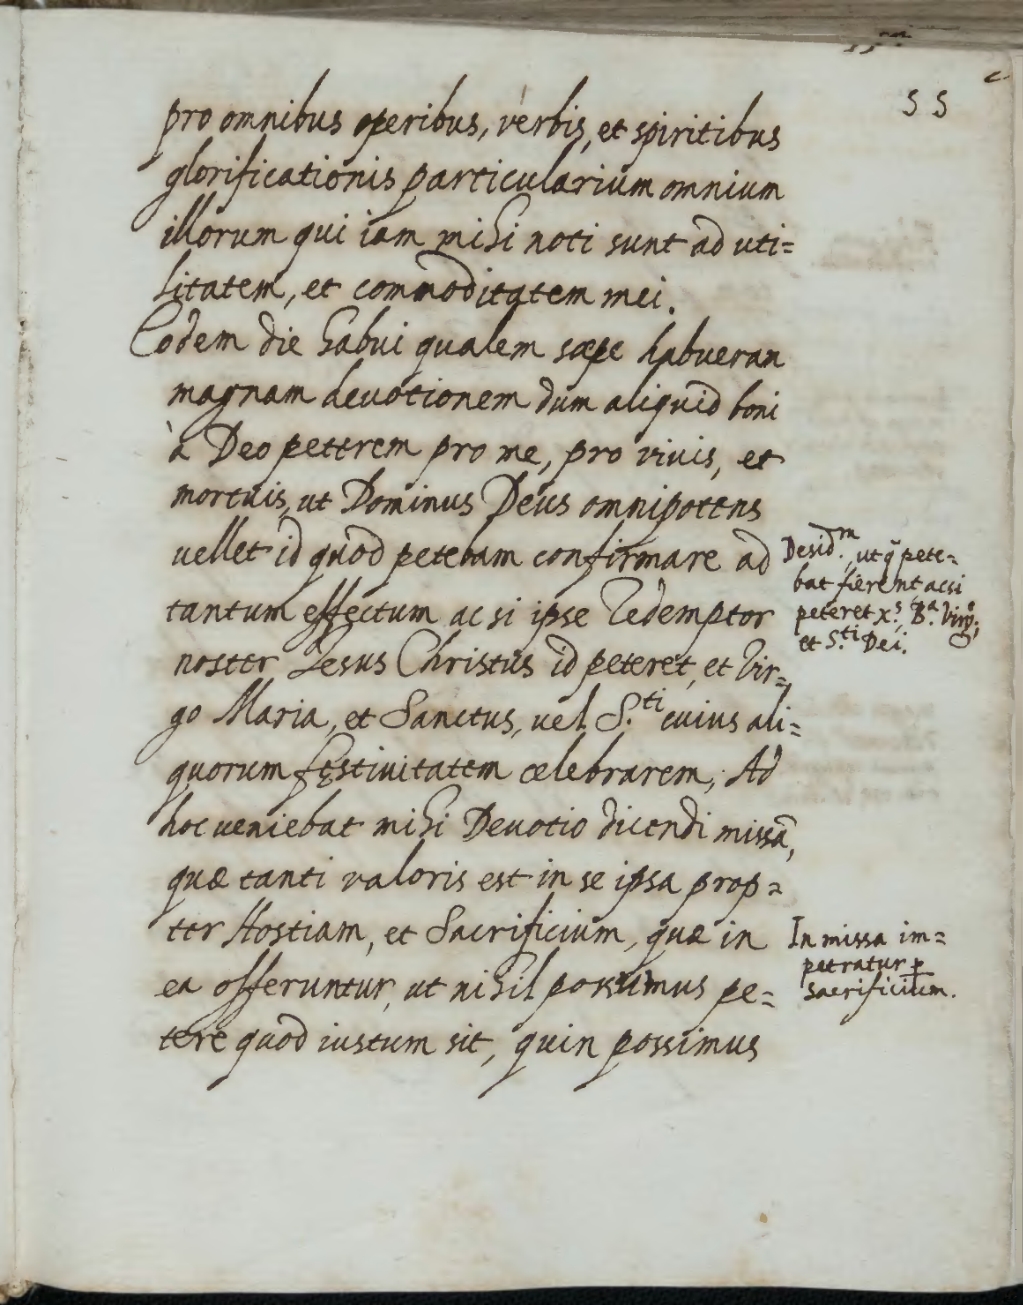 55
pro omnibus operibus, verbis, et spiritibus
glorificationis particularium omnium
illorum qui iam mihi noti sunt ad uti=
litatem, et commoditatem mei.
Eodem die habui qualem sæpe habueran
magnam deuotionem dum aliquid boni
à Deo peterem pro me, pro viuis, et
mortuis, ut Dominus Deus omnipotens
uellet id quod petebam confirmare ad
tantum effectum ac si ipse Redemptor
noster Jesus Christus id peteret, et Vir=
go Maria, et Sanctus, uel S.ti cuius ali=
quorum festiuitatem celebrarem; Ad
hoc ueniebat mihi Deuotio dicendi missã,
quæ tanti valoris est in se ipsa prop=
ter Hostiam, et Sacrificium, quæ in
ea offeruntur, ut nihil possumus pe=
tere quod iustum sit, quin possimus
Desid.m, ut q̃ pete=
bat fierent acsi
peteret x.s B.a Virg.o;
et S.ti Dei.
In missa im=
petratur p
sacrificium.